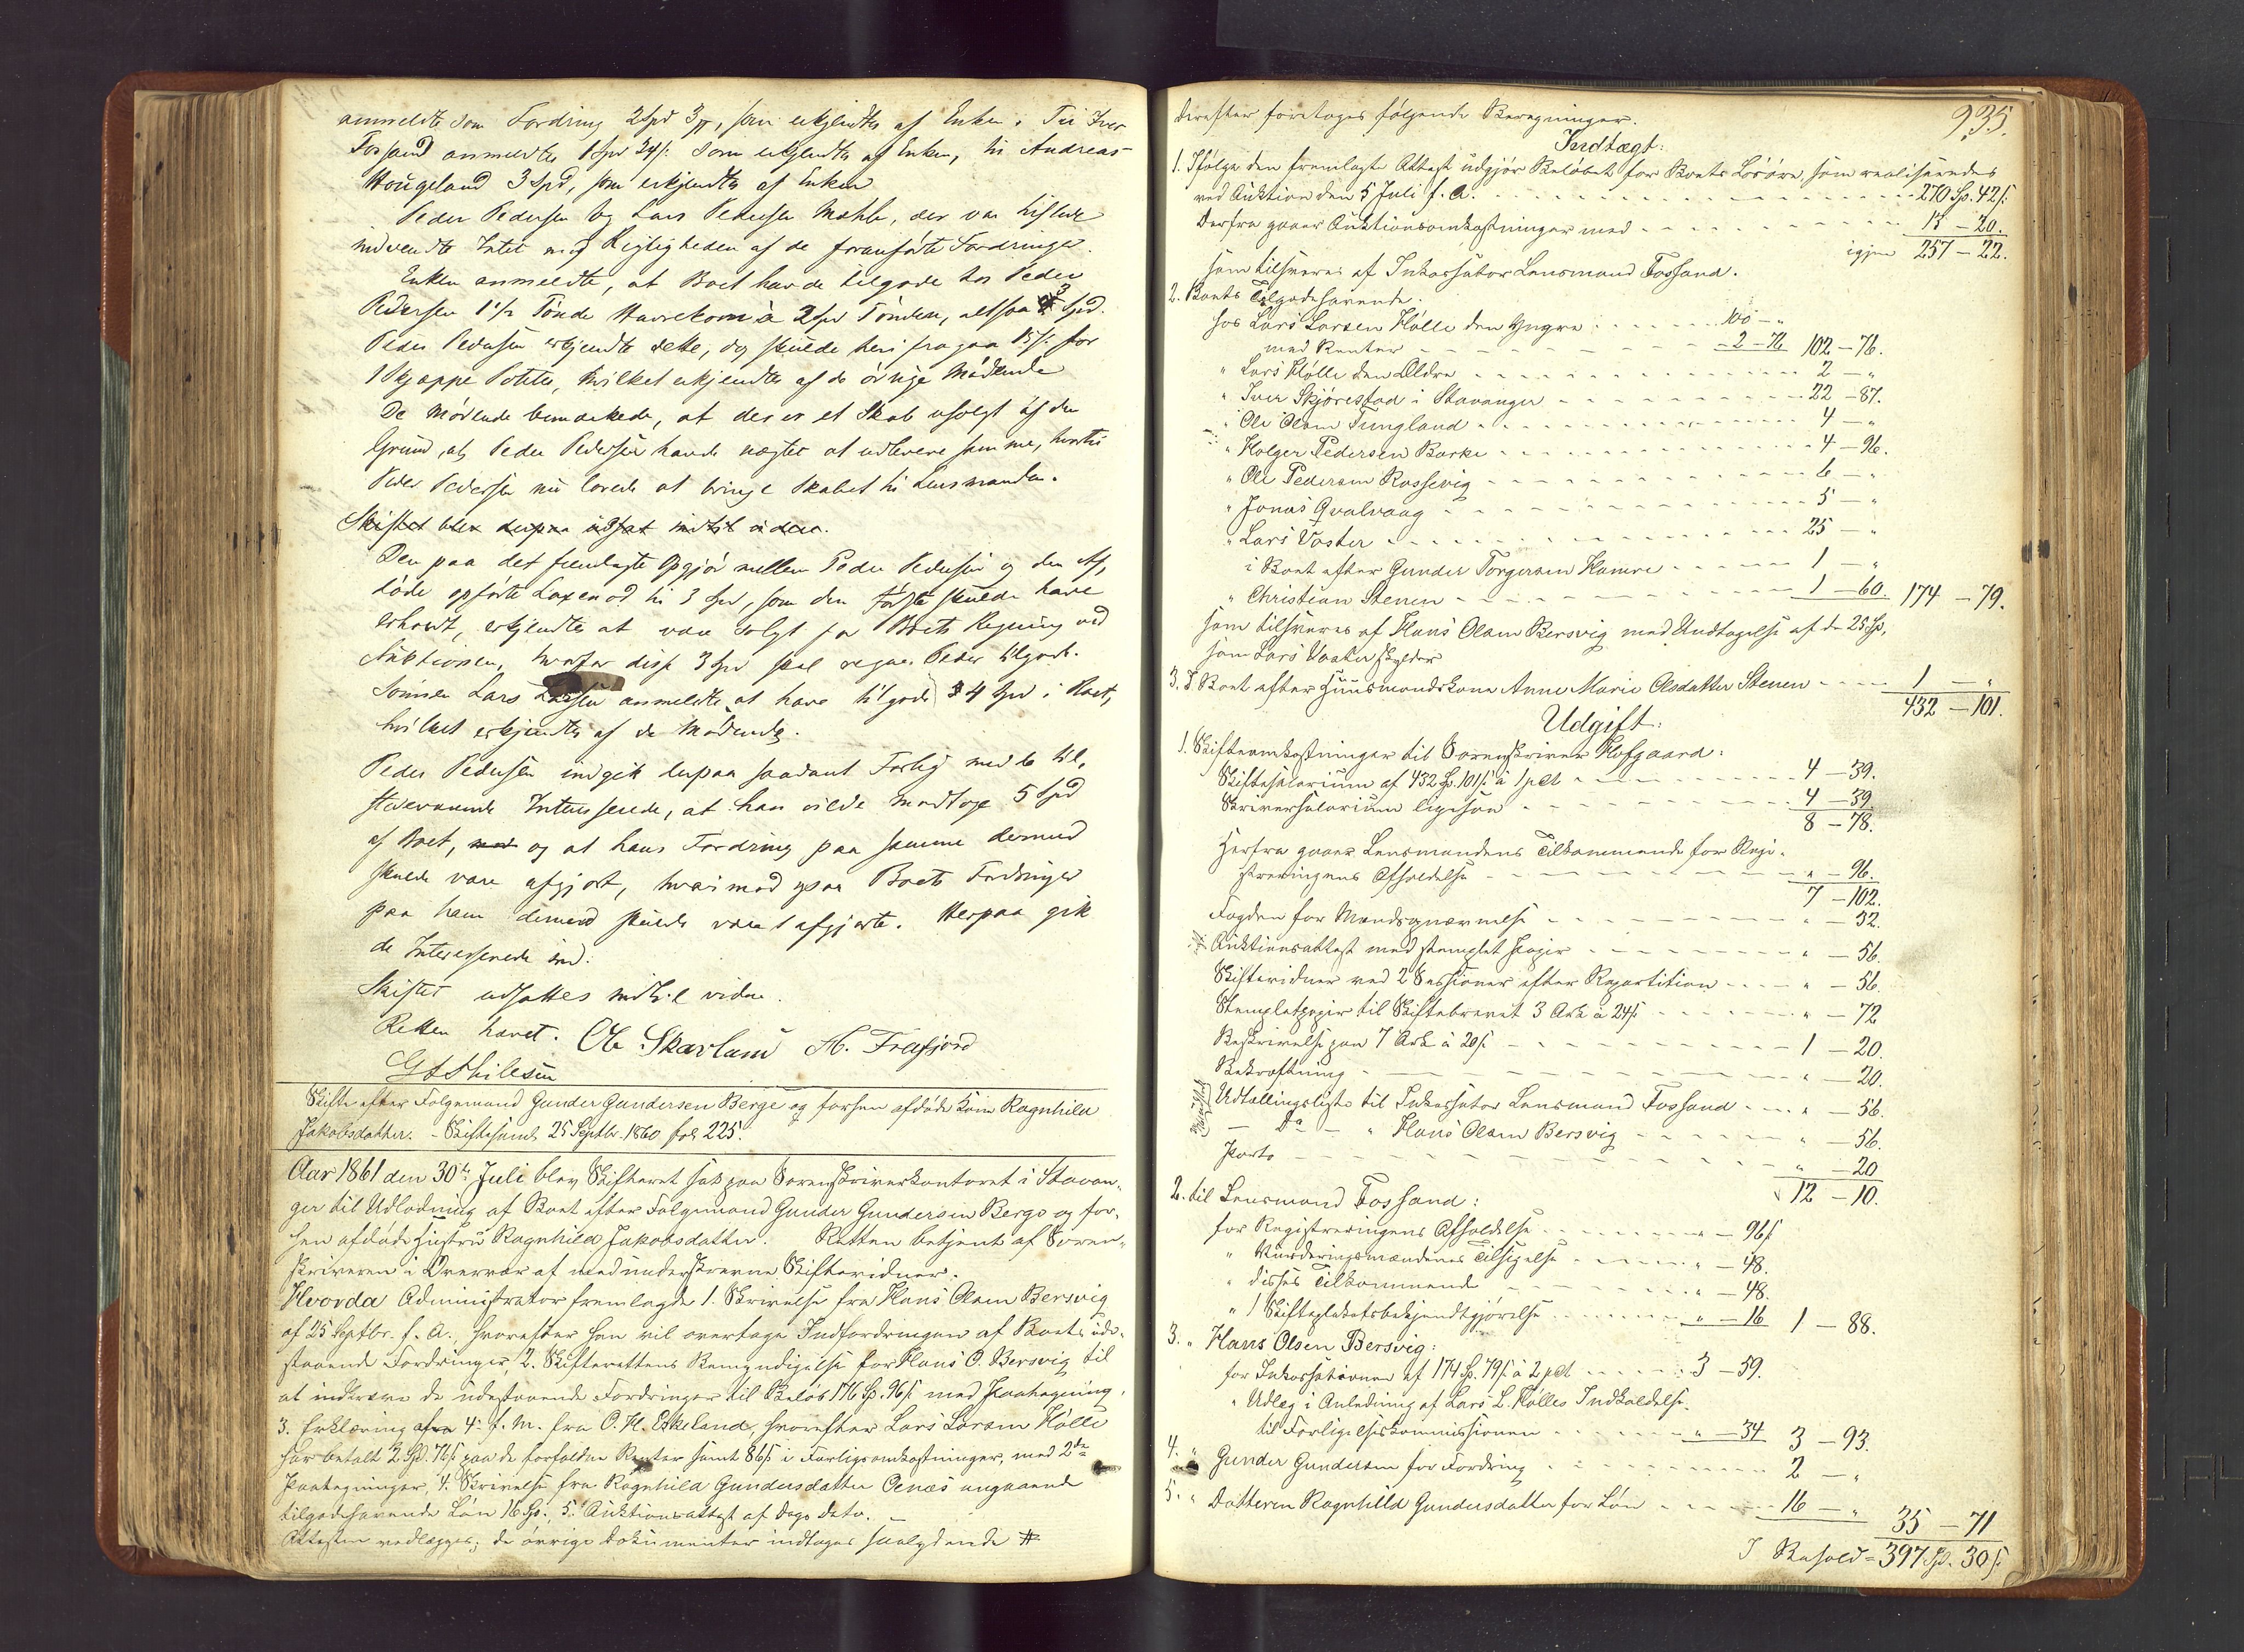 anmeldte som Fordring 2 Spd 3 ß, som erkjendtes af Enken. Til Iver
Fossand anmeldtes 1 Spd 24 ß: som erkjendtes af Enken, til Andreas
Hougeland 3 Spd, som erkjendtes af Enken
Peder Pedersen og Lars Pedersen Mæhle, der var tilstede
indvendte Intet mod Rigtigheden af de foranførte Fordringer.
Enken anmeldte, at Boet havde tilgode hos Peder
Pedersen 1 1/2 Tønde Havrekorn à 2 Spd Tønden, altsaa 3 Spd.
Peder Pedersen erkjendte dette, dog skulde heri fragaa 15 ß: for
1 Skjæppe Poteter, hvilket erkjendtes af de øvrige Mødende
De Mødende bemærkede, at der er et Skab usolgt af den
Grund, at Peder Pedersen havde nægtet at udlevere samme, hvortil
Peder Pedersen nu lovede at bringe Skabet til Lensmanden.
Skiftet blev derpaa udsat indtil videre.
Den paa det fremlagte Opgjør mellem Peder Pedersen og den Af,
døde opførte Laxenod til 3 Spd, som den første skulde have
erholdt, erkjendtes at være solgt for Boets Regning ved
Auktionen, hvorfor disse 3 Spd skal regnes Peder tilgode.
Sønnen Lars Larsen anmeldte at have tilgode 4 Spd i Boet,
hvilket erkjendtes af de Mødende.
Peder Pedersen indgik derpaa saadant Forlig med de til,
stedeværende Interesserede, at han vilde modtage 5 Spd
af Boet, med og at hans Fordring paa samme dermed
skulde være afgjort, hvorimod ogsaa Boets Fordringer
paa ham dermed skulde være afgjorte. Herpaa gik
de Interesserede ind.
Skiftet udsattes indtil videre.
Retten hævet. Ole Skarland H. Frafjord
Skifte efter Folgemand Gunder Gundersen Berge og forhen afdøde Kone Ragnhild
Jakobsdatter. – Skiftesaml. 25 Septbr. 1860 fol. 225.
Aar 1861 den 30te Juli blev Skifteret sat paa Sorenskriverkontoret i Stavan,
ger til Udlodning af Boet efter Folgemand Gunder Gundersen Berge og for,
hen afdøde Hustru Ragnhild Jakobsdatter. Retten betjent af Soren,
skriveren i Overvær af medunderskrevne Skiftevidner.
Hvorda Administrator fremlagde 1. Skrivelse fra Hans Olsen Bersvig
af 25 Septbr. f. A., hvorefter han vil overtage Indfordringen af Boets ude,
staaende Fordringer, 2. Skifterettens Bemyndigelse for Hans O. Bersvig til
at inddrive de udestaaende Fordringer til Beløb 176 Sp. 96 ß med Paategning,
3. Erklæring afra 4 f. M. fra O. H. Eskeland, hvorefter Lars Larsen Hølle
har betalt 2 Sp. 76 ß paa de forfaldne Renter samt 86 ß i Forligsomkostninger, med 2de
Paategninger, 4. Skrivelse fra Ragnhild Gundersdatter Oenæs angaaende
tilgodehavende Løn 16 Sp., 5. Auktionsattest af Dags Dato.
Attesten vedlægges; de øvrige Dokumenter indtages saalydende #
935.
Derefter foretoges følgende Beregninger.
Indtægt:
1. Ifølge den fremlagte Attest udgjør Beløbet for Boets Løsøre, som realiseredes
ved Auktion den 5 Juli f. A. 270 Sp. 42 ß
Derfra gaaer Auktionsomkostninger med 13 – 20.
igjen 257 – 22.
som tilsvares af Inkassator Lensmand Fossand.
2. Boets Tilgodehavende:
hos Lars Larsen Hølle den Yngre 100 – „
med Renter 2 – 76 102 – 76.
„ Lars Hølle den Ældre 2 – „
„ Iver Skjørestad i Stavanger 22 – 87.
„ Ole Olsen Tungland 4 – „
„ Holger Pedersen Barke 4 – 96.
„ Ole Pedersen Rossevig 6 – „
„ Jonas Qvalvaag 5 – „
„ Lars Vaster 25 – „
i Boet efter Gunder Torgersen Hamre 1 – „
„ Christian Stenen 1 – 60. 174 – 79.
som tilsvares af Hans Olsen Bersvig med Undtagelse af de 25 Sp,
som Lars Vaster skylder
3. I Boet efter Huusmandskone Anne Marie Olsdatter Stenen 1 – „
432 – 101.
Udgift:
1. Skifteomkostninger til Sorenskriver Hofgaard:
Skiftesalarium af 432 Sp. 101 ß à 1 pCt 4 – 39.
Skriversalarium ligesaa 4 – 39.
8 – 78.
Herfra gaaer Lensmandens Tilkommende for Regi-
streringens Afholdelse „ – 96.
7 – 102.
Fogden for Mandsopnævnelse „ – 32.
Auktionsattest med stemplet Papir „ – 56.
Skiftevidner ved 2 Sessioner efter Repartition „ – 56.
Stempletpapir til Skiftebrevet 3 Ark à 24 ß „ – 72
Beskrivelse paa 7 Ark à 20 ß 1 – 20.
Bekræftning „ – 20.
Udtællingsliste til Inkassator Lensmand Fossand „ – 56.
– Do – „ Hans Olsen Bersvig „ – 56.
Porto „ – 20
12 – 10.
2. til Lensmand Fossand:
for Registreringens Afholdelse – 96 ß
„ Vurderingsmændenes Tilsigelse „ – 48.
„ disses Tilkommende „ – 48.
„ 1 Skifteplakatsbekjendtgjørelse „ – 16 1 – 88.
3. „ Hans Olsen Bersvig:
for Inkassationen af 174 Sp. 79 ß à 2 pCt 3 – 59.
„ Udlæg i Anledning af Lars L. Hølles Indkaldelse
til Forligelseskommissionen „ – 34 3 – 93.
4. „ Gunder Gundersen for Fordring 2 – „
5. „ Datteren Ragnhild Gundersdatter for Løn 16 – „
35 – 71
I Behold = 397 Sp. 30 ß